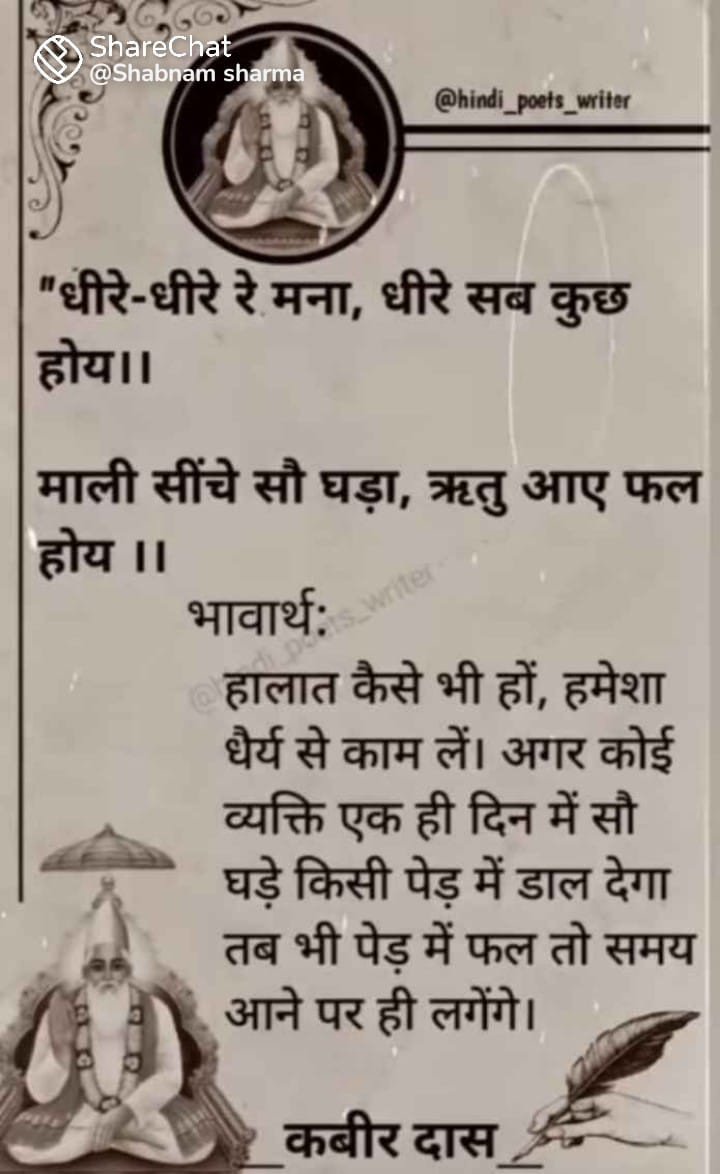 ShareChat
@Shabnam sharma
@hindi_poets_writer
"धीरे-धीरे रे मना, धीरे सब कुछ
होय।।
माली सींचे सौ घड़ा, ऋतु आए फल
होय ।।
भावार्थ:
@hindi_poets_writer
हालात कैसे भी हों, हमेशा
धैर्य से काम लें। अगर कोई
व्यक्ति एक ही दिन में सौ
घड़े किसी पेड़ में डाल देगा
तब भी पेड़ में फल तो समय
आने पर ही लगेंगे।
_कबीर दास_